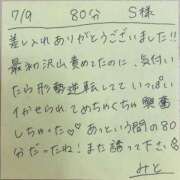 7/9 80分 S様
差し入れありがとうございました!!
最初沢山責めたのに、気付い
たら形勢逆転してていっぱい
イかせられてめちゃくちゃ興奮
しちゃった♡♡あっという間の80
分だったね!また誘って下さい
みと